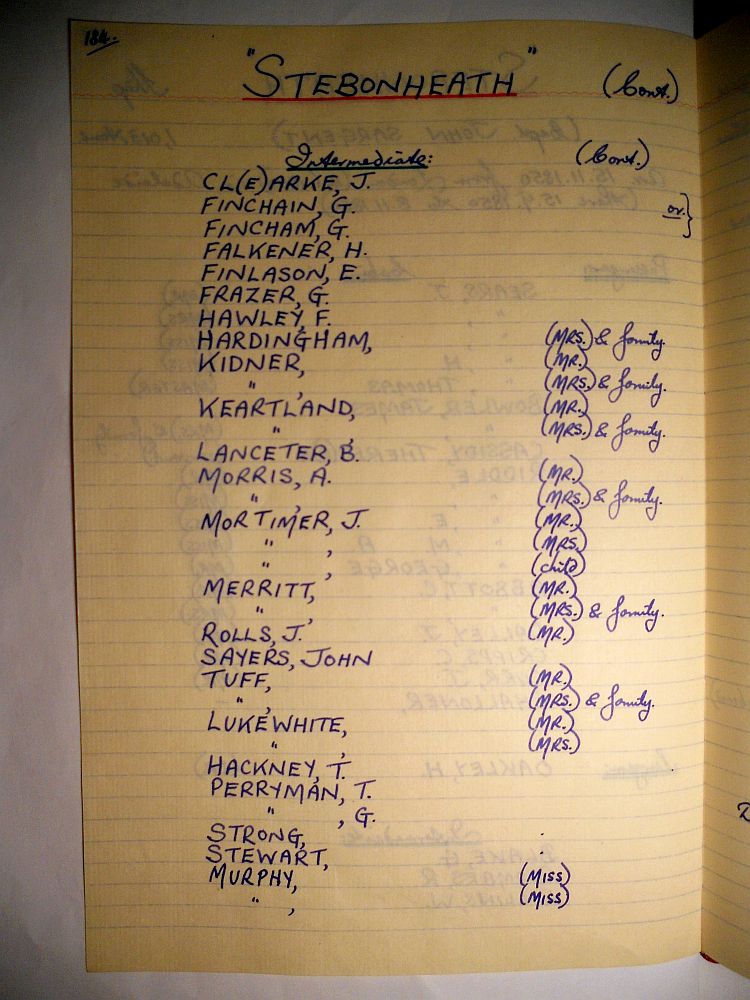 184.
"STEBONHEATH" (Cont.)
Intermediate: (Cont.)
CL(E)ARKE, J.
FINCHAIN, G. or }
FINCHAM, G.
FALKENER, H.
FINLASON, E.
FRAZER, G.
HAWLEY, F.
HARDINGHAM, (MRS.) & family.
KIDNER, (MR.)
" , (MRS.) & family.
KEARTLAND, (MR.)
" , (MRS.) & family.
LANCETER, B.
MORRIS, A. (MR.)
" , (MRS.) & family.
MORTIMER, J. (MR.)
" , (MRS.)
" , (child)
MERRITT, (MR.)
" , (MRS.) & family.
ROLLS, J. (MR.)
SAYERS, JOHN
TUFF, (MR.)
" , (MRS.) & family.
LUKEWHITE, (MR.)
" , (MRS.)
HACKNEY, T.
PERRYMAN, T.
" , G.
STRONG,
STEWART,
MURPHY, (MISS)
" , (MISS)